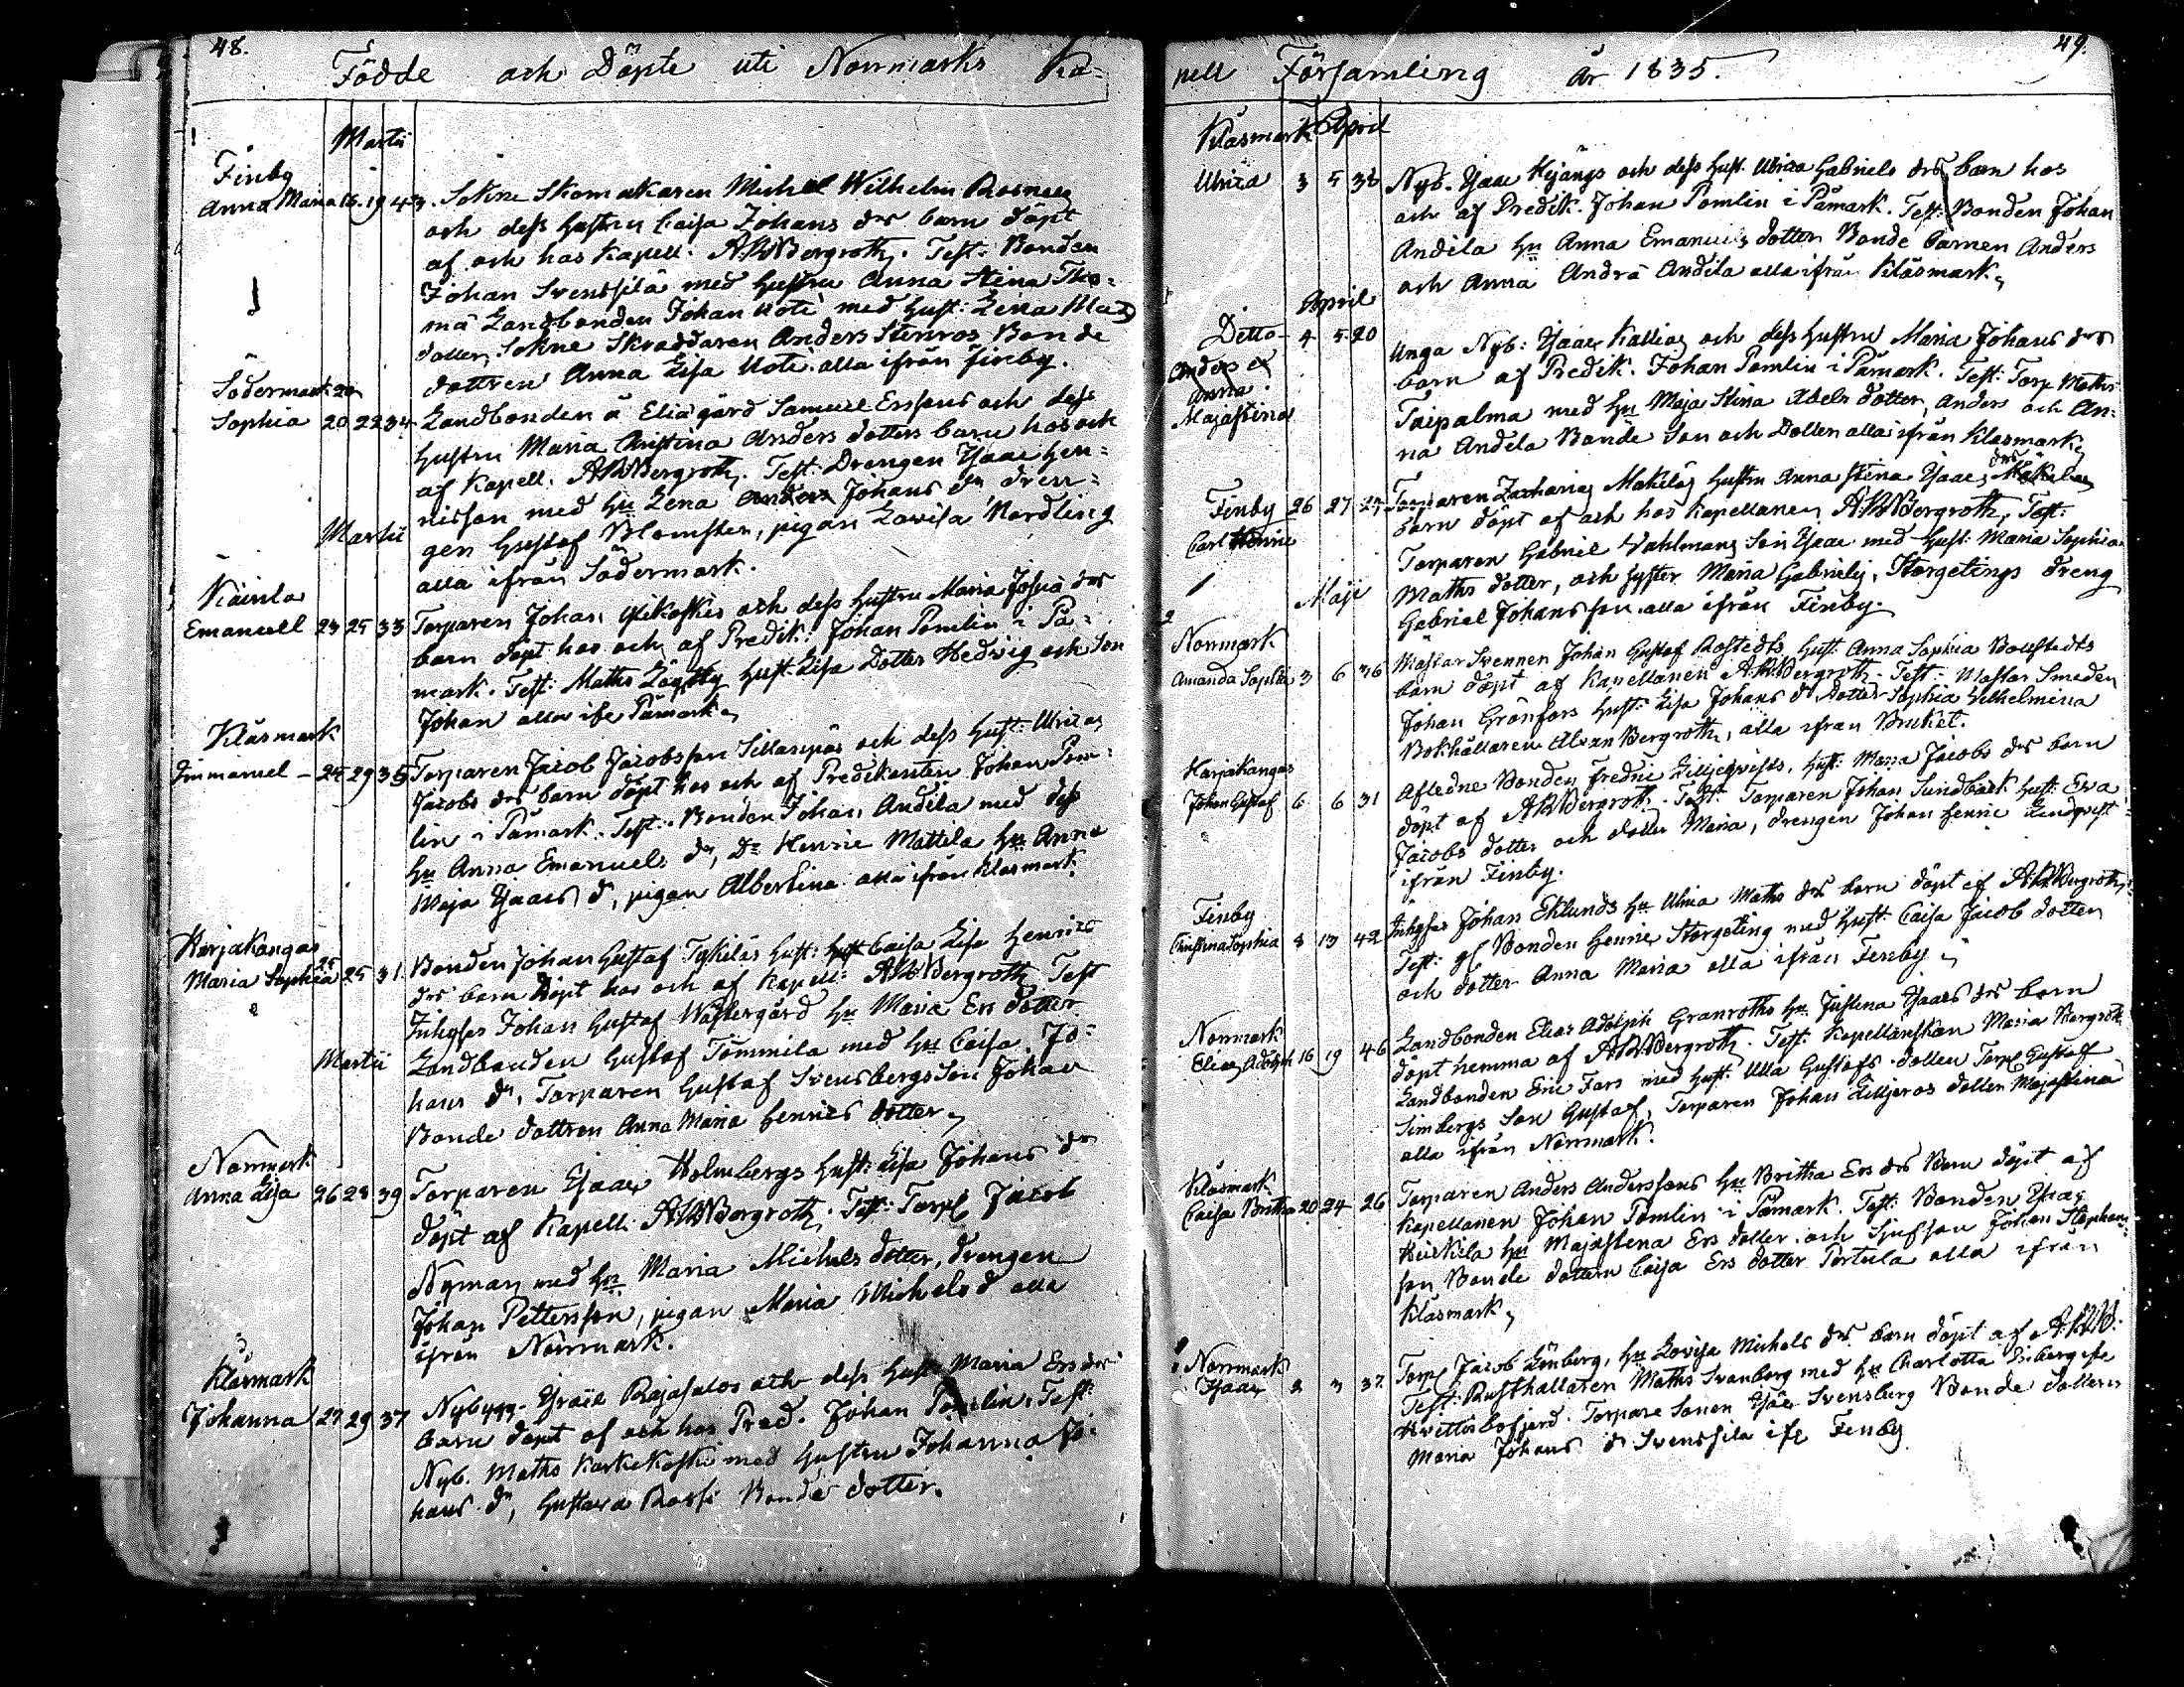 48.
Födde och Döpte uti Norrmarks Ka=
Martii
Finby
Anna Maria 16. 19 43. Sokne Skomakaren Michel Wilhelm
och dess hustru Caisa Johans drs barn döpt
af och hos Kapell. AWBergroth. Test: Bonden
Johan Svenssilä med hustru Anna Stina Tho=
mä Landbonden Johan Uoti med Hust: Lena Mats
dotter, Sokne Skräddaren Anders Stenros Bonde
dottren Anna Lisa Uoti alla ifrån Finby.
Södermark 20
Sophia 20 22 34 Landbonden å Eliä gård Samuel Erssons och dess
hustru Maria Christina Anders dotters barn hos och
af Kapell. AWBergroth. Test: Drengen Isaac Hen=
risson med Hu Lena Anders Johans dr Dren=
gen Gustaf Blomster, pigan Lovisa Nordling
alla ifrån Södermark.
Martii
Emanuell 23 25 33 Torparen Johan och dess hustru Maria Josua drs
barn döpt hos och af Predik: Johan Pomlin i På=
mark. Test: Maths Hust. Lisa Dotter Hedvig och Son
Johan alla ifr Påmark
Klåsmark
Immanuel - 24 29 35 Torparen Jacob Jacobsson Sillanpää och dess Hust: Ulricas
Jacobs drs barn döpt hos och af Predikanten Johan Pom=
lin i Påmark. Test: Bonden Johan Andila med dess
Hu Anna Emanuels dr, Do Henric Mattila Hu Anna
Maja Isaacs d, pigan Albertina alla ifrån Klåsmark
Harjakangas
Maria Sophia 25 25 31. Bonden Johan Gustaf Tykiläs Hust: Caisa Lisa Henrics
drs barn Döpt hos och af Kapell: AWBergroth Test
Inhyses Johan Gustaf Wästergård Hu Maria Ers Dotter
Martii
Landbonden Gustaf Tommila med Hu Caisa Jo=
hans dr, Torparen Gustaf Svensbergs Son Johan
Bonde dottren Anna Maria Henrics dotter,
Norrmark
Anna Lisa 26 28 39 Torparen Isaac Holmbergs Hust: Lisa Johans dr
döpt af Kapell. AWBergroth. Test: Torp Jacob
Nyman med Hu Maria Michels dotter, Drengen
Johan Pettersson, pigan Maria Michels d alla
ifrån Norrmark.
Klåsmark
Johanna 27 29 37 Nybygg. Israel Rajasalos och dess Hust Maria Ers drs
barn döpt af och hos Pred. Johan Pomlin. Test:
Nyb. Maths Karkikoski med hustru Johanna Jo=
hans dr, Gustava Rossi Bonde dotter.
49.
pell Församling år 1835.
Klåsmark April
Ulrica 3 5 38 Nyb. Isaac och dess Hust. Ulrica Gabriels drs barn hos
och af Predik. Johan Pomlin i Påmark. Test: Bonden Johan
Andila Hu Anna Emanuels dotter Bonde barnen Anders
och Anna Andrä Andila alla ifrån Klåsmark,
April
Ditto 4 5 20 Unga Nyb: Isaac Kallios och dess hustru Maria Johans drs
Anders
Anna
Majastina
barn af Predik. Johan Pomlin i Påmark. Test: Torp Maths
Taipalma med Hu Maja Stina Abels dotter, Anders och An=
na Andela Bonde Son och Dotter alla ifrån Klåsmark
Finby 26 27 27 Torparen Zacharias Makeläs hustru Anna Stina Isaacs drs
Carl Henric
barn döpt af och hos Kapellanen AWBergroth, Test:
Torparen Gabriel Vahlmans Son Isaac med Hust. Maria Sophia
Maths dotter, och Syster Maria Gabriels, Storgetings dreng
Gabriel Johansson alla ifrån Finby.
Maji
Norrmark
Amanda Sophia 3 6 36 Mästar Svennen Johan Gustaf Rostedts Hust: Anna Sophia
barn döpt af Kapellanen AWBergroth. Test: Mästar Smeden
Johan Grönfors Hust: Lisa Johans dr dotter Sophia Wilhelmina
Bokhållaren Bergroth, alla ifrån Bruket.
Harjakangas
Johan Gustaf 6 6 31 Afledne Bonden Fredric Lilljeqvists, Hust: Maria Jacobs drs barn
döpt af AWBergroth. Test: Torparen Johan Sundbäck Hust: Eva
Jacobs dotter och dotter Maria, drengen Johan Henric Lindqvist
ifrån Finby.
Finby
Christina Sophia 8 13 42 Inhyses Johan Eklunds Hu Ulrica Maths drs barn döpt af AWBergroth
Test: gl Bonden Henric Storgeting med Hust. Caisa Jacob dotter
och dotter Anna Maria alla ifrån Finby
Norrmark
Elias Adolph 16 19 46 Landbonden Elias Adolph Granroths Hu Justina Isaacs drs barn
döpt hemma af AWBergroth. Test: Kapellanskan Maria Bergroth
Landbonden Eric Fars med Hust. Ulla Gustafs dotter Torp Gustaf
Simbergs Son Gustaf, Torparen Johan Lilljeros dotter Majastina
alla ifrån Norrmark.
Klåsmark
Caisa Britha 20 24 26 Torparen Anders Anderssons Hu Britha Ers drs Barn döpt af
Kapellanen Johan Pomlin i Påmark. Test: Bonden Isac
Hu Majastina Ers dotter och Johan Stephans
son Bonde dottern Caisa Ers dotter Pertula alla ifrån
Klåsmark,
Norrmark
Isaac 2 3 37 Torp Jacob Hu Lovisa Michels drs barn döpt af AWB.
Test: Rusthållaren Maths Svanberg med Hu Charlotta
Torpare Sonen Isac Svensberg Bonde dottern
Maria Johans d Svenssila ifr Finby